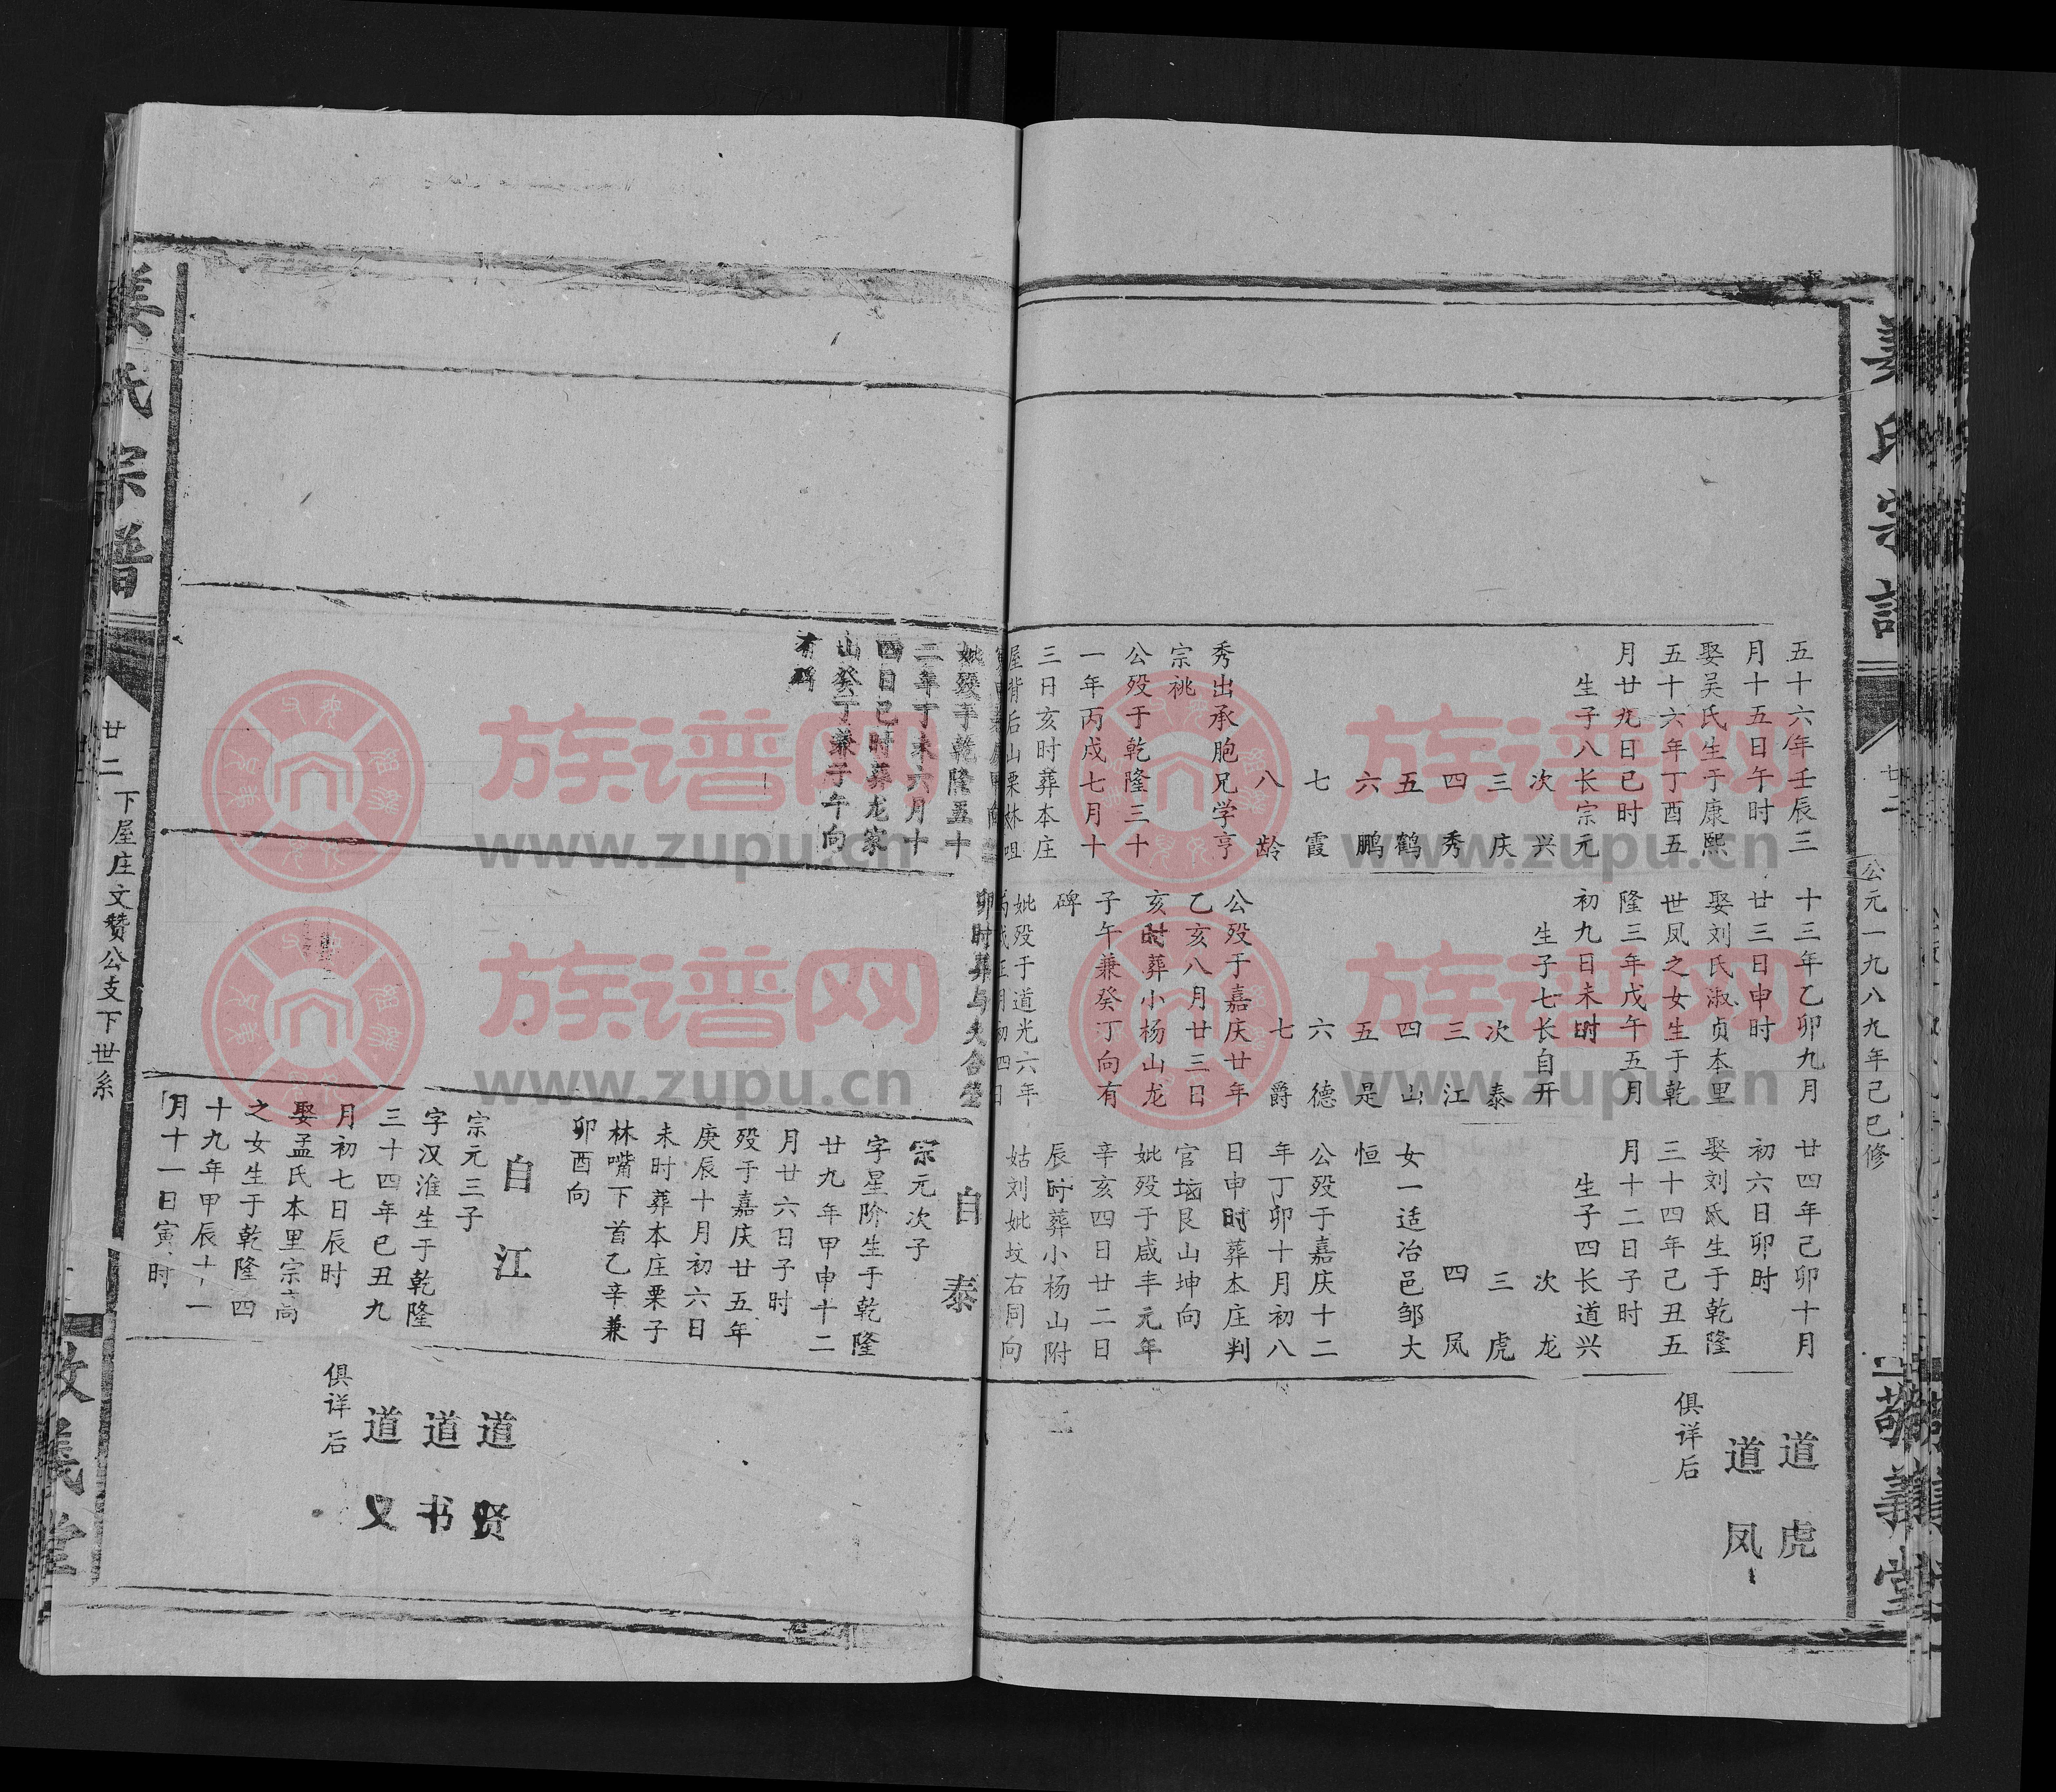 五十六年壬辰三
月十五日午时
娶吴氏生于康熙
五十六年丁酉五
月廿九日巳时
生子八长宗元
次兴
三庆
四秀
五鹤
六鹏
七霞
八龄
秀出承胞兄学亨
宗祧
公殁于乾隆三十
一年丙戌七月十
三日亥时葬本庄
屋背后山栗林咀
十三年乙卯九月
廿三日申时
娶刘氏淑贞本里
世凤之女生于乾
隆三年戊午五月
初九日未时
生子七长自开
次泰
三江
四山
五是
六德
七爵
公殁于嘉庆廿年
乙亥八月廿三日
亥时葬小杨山龙
子午兼癸丁向有
碑
妣殁于道光六年
廿四年己卯十月
初六日卯时
娶刘氏生于乾隆
三十四年己丑五
月十二日子时
生子四长道兴
次龙
三虎
四凤
女一适冶邑邹大
恒
公殁于嘉庆十二
年丁卯十月初八
日申时葬本庄判
官垴艮山坤向
妣殁于咸丰元年
辛亥四日廿二日
辰时葬小杨山附
姑刘妣坟右同向
道虎
道凤
俱详后
公元一九八九年己巳修
廿二
敬义堂
妣殁于乾隆五十
二年丁未六月十
四日巳时葬龙家
山癸丁兼子午向
有碑
卯时葬与夫合茔
自泰
宗元次子
字星阶生于乾隆
廿九年甲申十二
月廿六日子时
殁于嘉庆廿五年
庚辰十月初六日
未时葬本庄栗子
林嘴下首乙辛兼
卯酉向
自江
宗元三子
字汉淮生于乾隆
三十四年己丑九
月初七日辰时
娶孟氏本里宗高
之女生于乾隆四
十九年甲辰十一
月十一日寅时
道贤
道书
道义
俱详后
姜氏宗谱
廿二
下屋庄文赞公支下世系
族谱网
www.zupu.cn
族谱网
www.zupu.cn
族谱网
www.zupu.cn
族谱网
www.zupu.cn